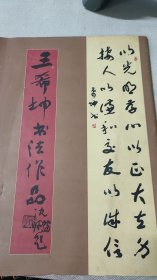 以光明存心以正大立身
接人以谦和交友以诚信
希坤书
王希坤书法作品